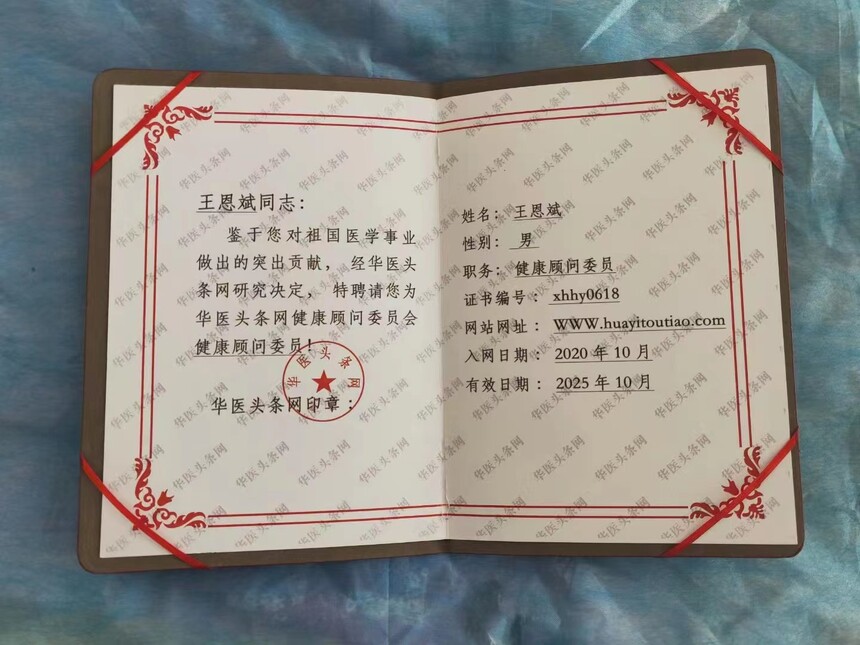 王恩斌同志：
鉴于您对祖国医学事业
做出的突出贡献，经华医头
条网研究决定，特聘请您为
华医头条网健康顾问委员会
健康顾问委员！
华医头条网
华医头条网印章：
姓名：王恩斌
性别：男
职务：健康顾问委员
证书编号：xhhy0618
网站网址：WWW.huayitoutiao.com
入网日期：2020年10月
有效日期：2025年10月
华医头条网